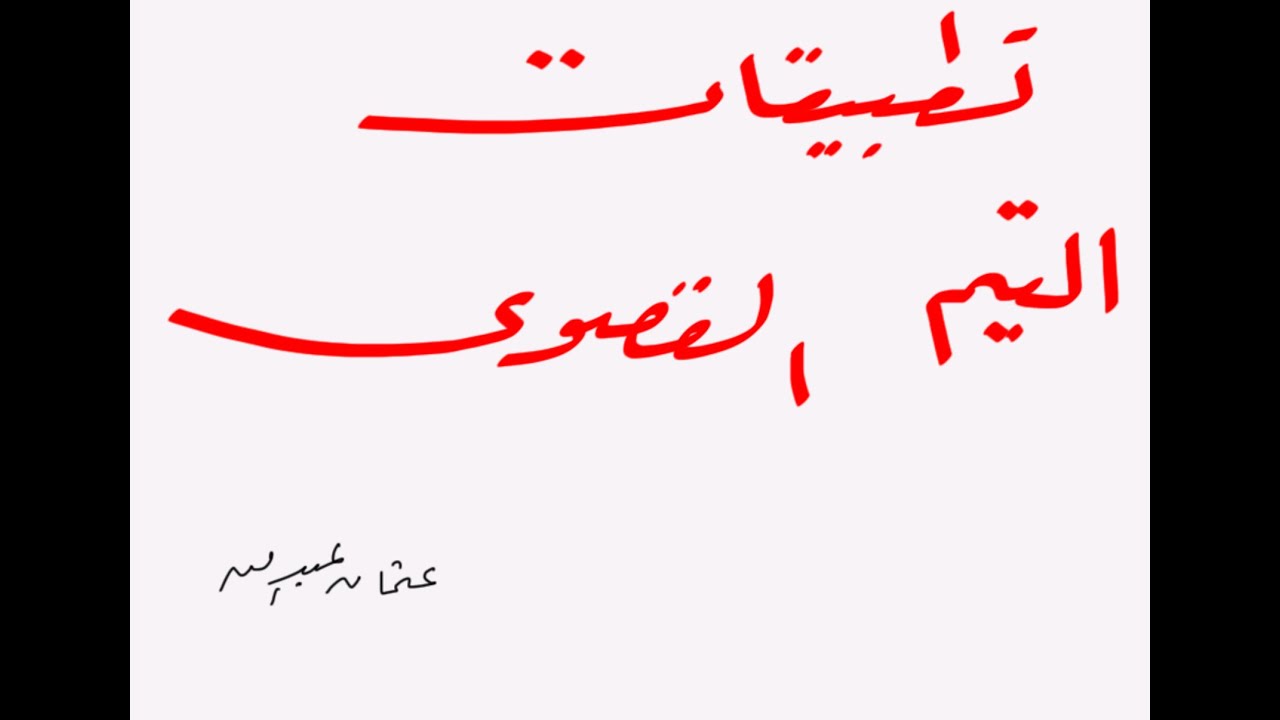 تطبيقات
القيم القصوى
عثمان عبدالله